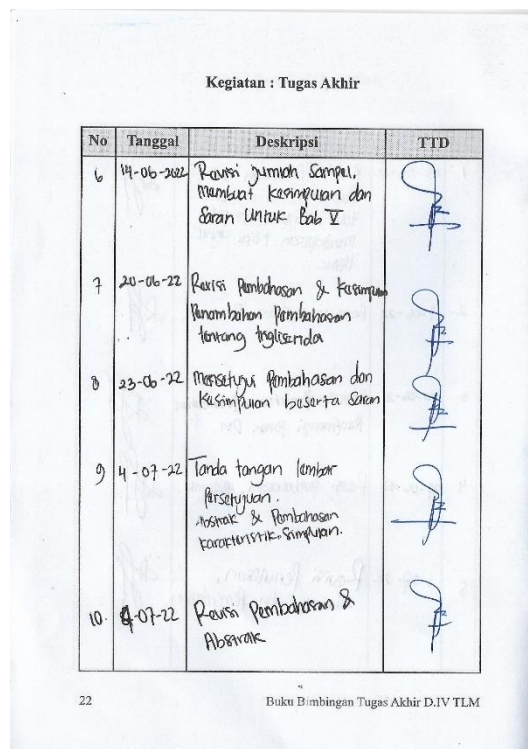 Kegiatan : Tugas Akhir
No Tanggal Deskripsi TTD
6 14-06-2022 Revisi jumlah Sampel,
Membuat Kesimpulan dan
Saran Untuk Bab V
7 20-06-22 Revisi Pembahasan & Kesimpulan
Penambahan Pembahasan
tentang trigliserida
8 23-06-22 Mensetujui Pembahasan dan
Kesimpulan beserta Saran
9 4-07-22 Tanda tangan lembar
Persetujuan.
Abstrak & Pembahasan
karakteristik. Simpulan.
10. -07-22 Revisi Pembahasan &
Abstrak
22 Buku Bimbingan Tugas Akhir D.IV TLM